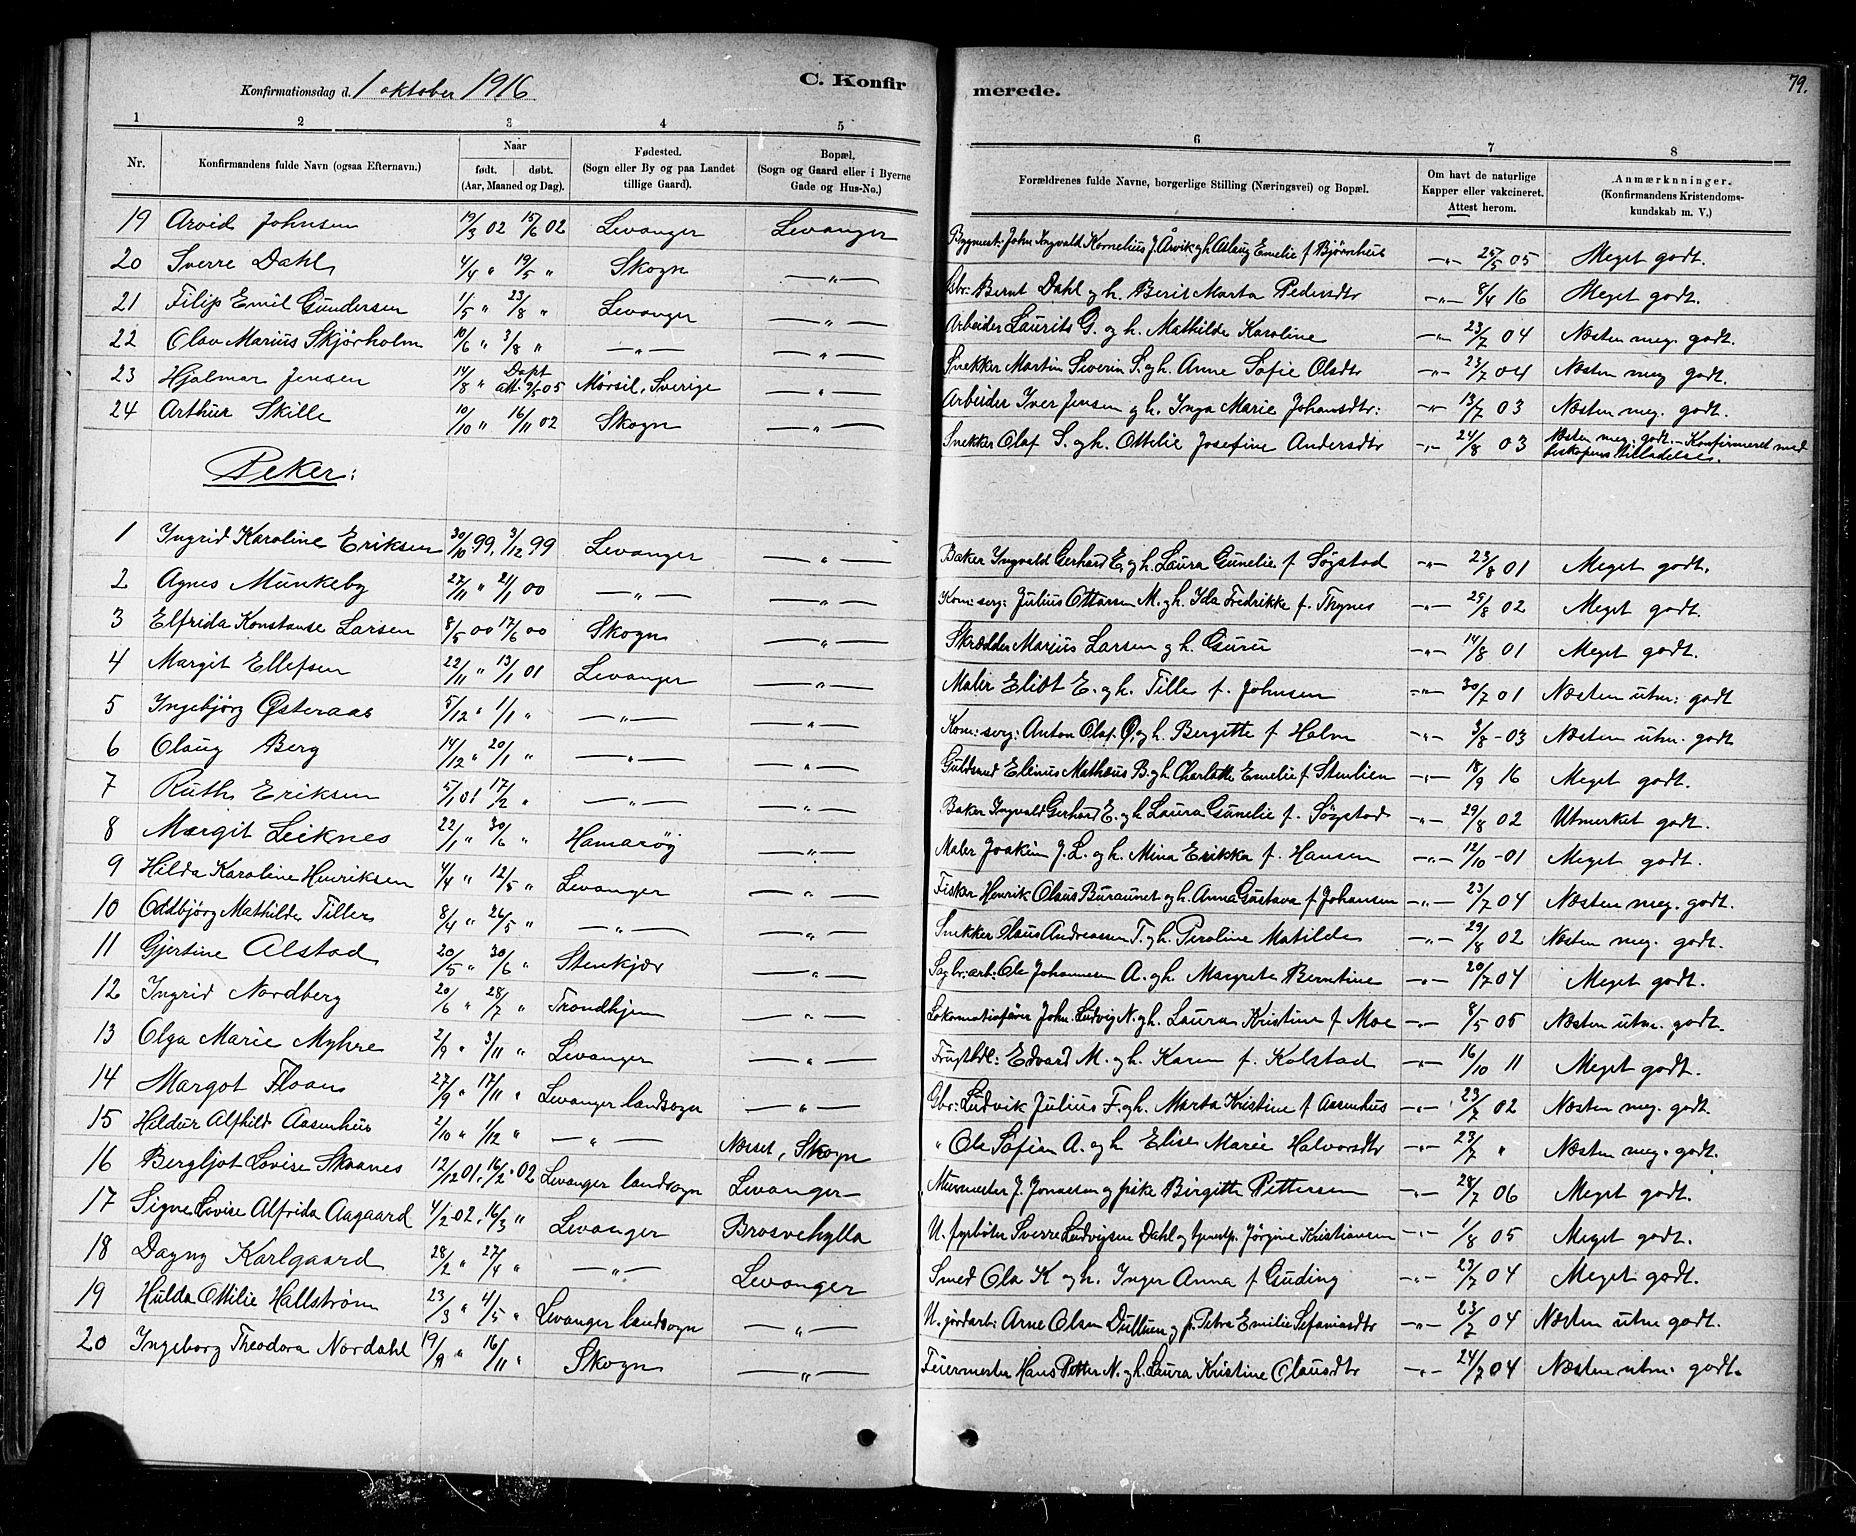 79.
Konfirmationsdag d. 1 oktober 1916 C. Konfirmerede.
1 2 3 4 5 6 7 8
Nr. Konfirmandens fulde Navn (ogsaa Efternavn.) Naar født. døbt. (Aar, Maaned og Dag). Fødested. (Sogn eller By og paa Landet tillige Gaard). Bopæl. (Sogn og Gaard eller i Byerne Gade og Hus-No.) Forældrenes fulde Navne, borgerlige Stilling (Næringsvei) og Bopæl. Om havt de naturlige Kopper eller vakcineret. Attest herom. Anmærkninger. (Konfirmandens Kristendomskundskab m. V.)
19 Arvid Johnsen 19/3 02 15/6 02 Levanger Levanger Bygmest: John Ingvald Kornelius J. Årvik gh. Aslaug Emelie f Bjørnhus —"— 25/5 05 Meget godt.
20 Sverre Dahl 4/4 " 19/5 " Skogn —"— Gbr: Bernt Dahl g h. Berit Marta Pedersdtr —"— 8/4 16 Meget godt.
21 Filip Emil Gundersen 1/5 " 23/8 " Levanger —"— Arbeider Laurits G. og h. Mathilde Karoline —"— 23/7 04 Næsten meg. godt.
22 Olav Marius Skjørholm 10/6 " 3/8 " —"— —"— Snekker Martin Severin S. gh. Anne Sofie Olsdtr —"— 23/7 04 Næsten meg godt.
23 Hjalmar Jensen 14/8 " Døpt att. 9/5 05 Mørsil, Sverige —"— Arbeider Iver Jensen g h. Inga Marie Johansdtr: —"— 13/7 03 Næsten meg. godt.
24 Arthur Skille 10/10 " 16/11 02 Skogn —"— Snekker Olaf S. gh. Ottilie Josefine Andersdtr —"— 24/8 03 Næsten meg. godt. – Konfirmeret med biskopens tilladelse.
Piker:
1 Ingrid Karoline Eriksen 30/10 99, 3/12 99 Levanger —"— Baker Ingvald Gerhard E, g h. Laura Gunelie f. Søgstad —"— 23/8 01 Meget godt.
2 Agnes Munkeby 27/11 " 21/1 00 —"— —"— Kom: serg: Julius Ottarsen M. gh. Ida Fredrikke f. Thynes —"— 29/8 02 Meget godt.
3 Elfrida Konstanse Larsen 8/5 00 17/6 00 Skogn —"— Skrædder Marius Larsen g h. Guru —"— 14/8 01 Meget godt.
4 Margit Ellefsen 22/11 " 13/1 01 Levanger —"— Maler Elidt E. gh. Tille f. Johnsen —"— 30/7 01 Næsten utm: godt
5 Ingebjørg Østeraas 5/12 " 1/1 " —"— —"— Kom: serg: Anton Olaf. Ø, g h. Bergitte f Holm —"— 3/8 – 03 Næsten utm. godt
6 Olaug Berg 14/12 " 20/1 " —"— —"— Guldsmed Elenus Mathæus B. gh Charlotte Emelie f Stenlien —"— 18/9 16 Meget godt.
7 Ruth Eriksen 5/1 01 17/2 " —"— —"— Baker Ingvald Gerhard E. g h Laura Gunelie f. Søgstad —"— 29/8 02 Utmerket godt.
8 Margit Leiknes 22/1 " 30/6 " Hamarøy —"— Maler Joakim J. L. og h. Mina Erikka f. Hansen —"— 12/10 – 01 Meget godt.
9 Hilda Karoline Henriksen 4/4 " 12/5 " Levanger —"— Fisker Henrik Olaus Buraunet og h. Anna Gustava f Johansen —"— 23/7 04 Næsten meg. godt.
10 Oddbjørg Mathilde Tiller 8/4 " 26/5 " —"— —"— Snekker Olaus Andreassen T. g h. Peroline Matilde —"— 29/8 02 Næsten meg. godt.
11 Gjertine Alstad 20/5 " 30/6 " Stenkjær —"— Sagbr: arb: Ole Johannesen A. gh. Margrete Berntine —"— 20/7 04 Meget godt.
12 Ingrid Nordberg 20/6 " 28/7 " Trondhjem —"— Lokomotivfører John Ludvig N. gh. Laura Kristine f Moe —"— 8/5 05 Næsten utm. godt.
13 Olga Marie Myhre 2/9 " 3/11 " Levanger —"— Frugthdl: Edvard M. og h. Karen f. Kolstad —"— 16/10 11 Meget godt.
14 Margot Floan 27/9 " 17/11 " Levanger landsogn —"— Gbr: Ludvik Julius F. gh. Marta Kristine f Aasenhus —"— 23/7 02 Næsten meg. godt.
15 Hildur Alfhild Aasenhus 2/10 " 1/12 " —"— Næset, Skogn " Ole Sofian A. og h Elise Marie Halvorsdtr —"— 23/7 " Næsten meg. godt.
16 Bergljot Lovise Skaanes 12/12 01, 16/2 " 02 Levanger landsogn Levanger Murmester J. Jonnesen og pike Birgitte Pettersen —"— 28/7 06 Meget godt.
17 Signe Lovise Alfrida Aagaard 4/2 02, 16/3 " Levanger Brosvehylla U. fyrbøter Sverre Ludvigsen Dahl og tjenestp. Jørgine Kristiansen —"— 1/8 05 Meget godt.
18 Dagny Karlgaard 28/2 " 27/4 " —"— Levanger Smed Ola K og h. Inger Anna f Guding —"— 23/7 04 Meget godt.
19 Hulda Ottilie Hallstrøm 23/3 " 4/5 " Levanger landsogn —"— U. jordarb: Arne Olsen Dullum g p. Petra Emilie Sefaniasdtr —"— 23/7 04 Næsten utm godt.
20 Ingeborg Theodora Nordahl 19/9 " 16/11 " Skogn —"— Feiermester Hans Petter N. gh. Laura Kristine Olausdtr —"— 24/7 04 Næsten utm. godt.